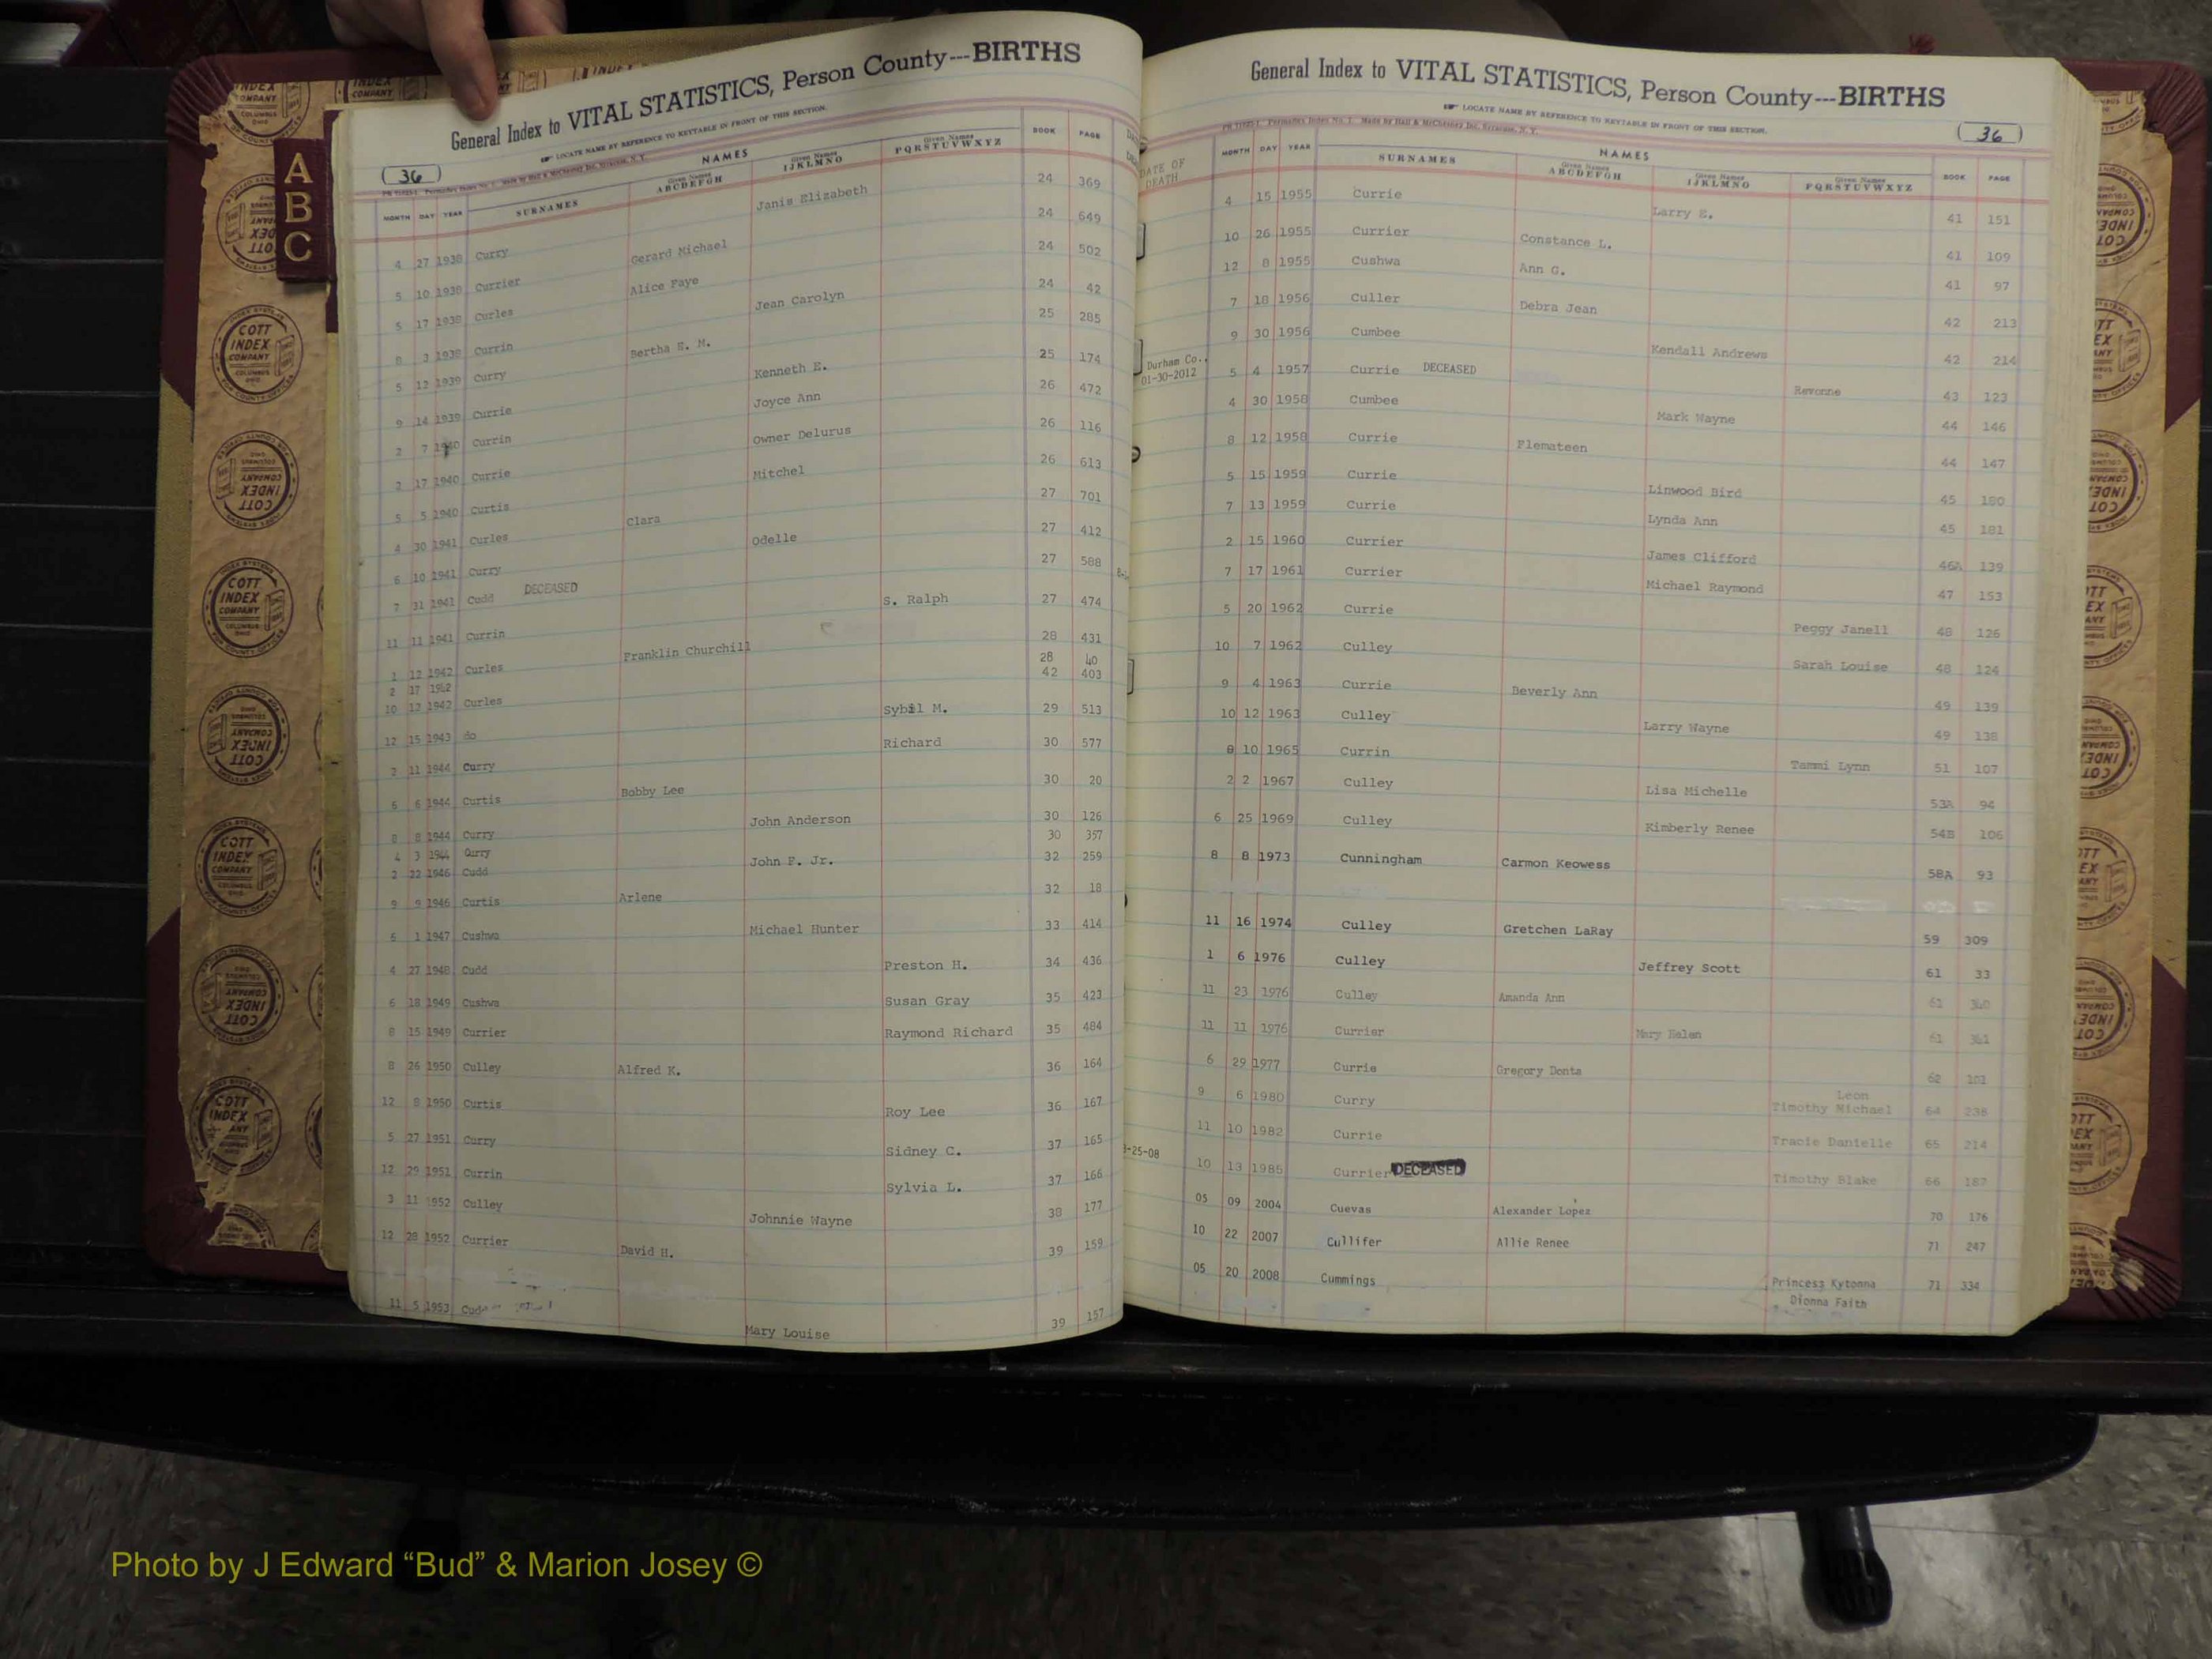 General Index to VITAL STATISTICS, Person County---BIRTHS
LOCATE NAME BY REFERENCE TO KEYTABLE IN FRONT OF THIS SECTION.
36
NAMES
MONTH DAY YEAR SURNAMES Given Names ABCDEFGH Given Names IJKLMNO Given Names PQRSTUVWXYZ BOOK PAGE
4 27 1938 Curry Janis Elizabeth 24 369
5 10 1938 Currier Gerard Michael 24 649
5 17 1938 Curles Alice Faye 24 502
8 3 1938 Currin Jean Carolyn 24 42
5 12 1939 Curry Bertha E. M. 25 285
9 14 1939 Currie Kenneth E. 25 174
2 7 1940 Currin Joyce Ann 26 472
2 17 1940 Currie Owner Delurus 26 116
5 5 1940 Curtis Mitchel 26 613
4 30 1941 Curles Clara 27 701
6 10 1941 Curry Odelle 27 412
7 31 1941 Cudd DECEASED 27 588
11 11 1941 Currin S. Ralph 27 474
1 12 1942 Curles Franklin Churchill 28 431
2 17 1962 28 40
10 12 1942 Curles 42 403
12 15 1943 do Sybil M. 29 513
2 11 1944 Curry Richard 30 577
6 6 1944 Curtis Bobby Lee 30 20
8 8 1944 Curry John Anderson 30 126
4 3 1944 Curry 30 357
2 22 1946 Cudd John F. Jr. 32 259
9 9 1946 Curtis Arlene 32 18
6 1 1947 Cushwa Michael Hunter 33 414
4 27 1948 Cudd Preston H. 34 436
6 18 1949 Cushwa Susan Gray 35 423
8 15 1949 Currier Raymond Richard 35 484
8 26 1950 Culley Alfred K. 36 164
12 8 1950 Curtis Roy Lee 36 167
5 27 1951 Curry Sidney C. 37 165
12 29 1951 Currin Sylvia L. 37 166
3 11 1952 Culley Johnnie Wayne 38 177
12 28 1952 Currier David H. 39 159
11 5 1953 Mary Louise 39 157
General Index to VITAL STATISTICS, Person County---BIRTHS
LOCATE NAME BY REFERENCE TO KEYTABLE IN FRONT OF THIS SECTION.
36
NAMES
DATE OF DEATH MONTH DAY YEAR SURNAMES Given Names ABCDEFGH Given Names IJKLMNO Given Names PQRSTUVWXYZ BOOK PAGE
4 15 1955 Currie Larry E. 41 151
10 26 1955 Currier Constance L. 41 109
12 8 1955 Cushwa Ann G. 41 97
7 18 1956 Culler Debra Jean 42 213
9 30 1956 Cumbee Kendall Andrews 42 214
Durham Co., 01-30-2012 5 4 1957 Currie DECEASED Revonne 43 123
4 30 1958 Cumbee Mark Wayne 44 146
8 12 1958 Currie Flemateen 44 147
5 15 1959 Currie Linwood Bird 45 180
7 13 1959 Currie Lynda Ann 45 181
2 15 1960 Currier James Clifford 46A 139
7 17 1961 Currier Michael Raymond 47 153
5 20 1962 Currie Peggy Janell 48 126
10 7 1962 Culley Sarah Louise 48 124
9 4 1963 Currie Beverly Ann 49 139
10 12 1963 Culley Larry Wayne 49 138
8 10 1965 Currin Tammi Lynn 51 107
2 2 1967 Culley Lisa Michelle 53A 94
6 25 1969 Culley Kimberly Renee 54B 106
8 8 1973 Cunningham Carmon Keowess 58A 93
11 16 1974 Culley Gretchen LaRay 59 309
1 6 1976 Culley Jeffrey Scott 61 33
11 23 1976 Culley Amanda Ann 61 340
11 11 1976 Currier Mary Helen 61 361
6 29 1977 Currie Gregory Donta 62
9 6 1980 Curry Leon Timothy Michael 64 238
11 10 1982 Currie Tracie Danielle 65 214
10 13 1985 Currier DECEASED Timothy Blake 66 187
-25-08
05 09 2004 Cuevas Alexander Lopez 70 176
10 22 2007 Cullifer Allie Renee 71 247
05 20 2008 Cummings Princess Kytonna 71 334
Dionna Faith
A
B
C
COTT
INDEX
COMPANY
Photo by J Edward “Bud” & Marion Josey ©